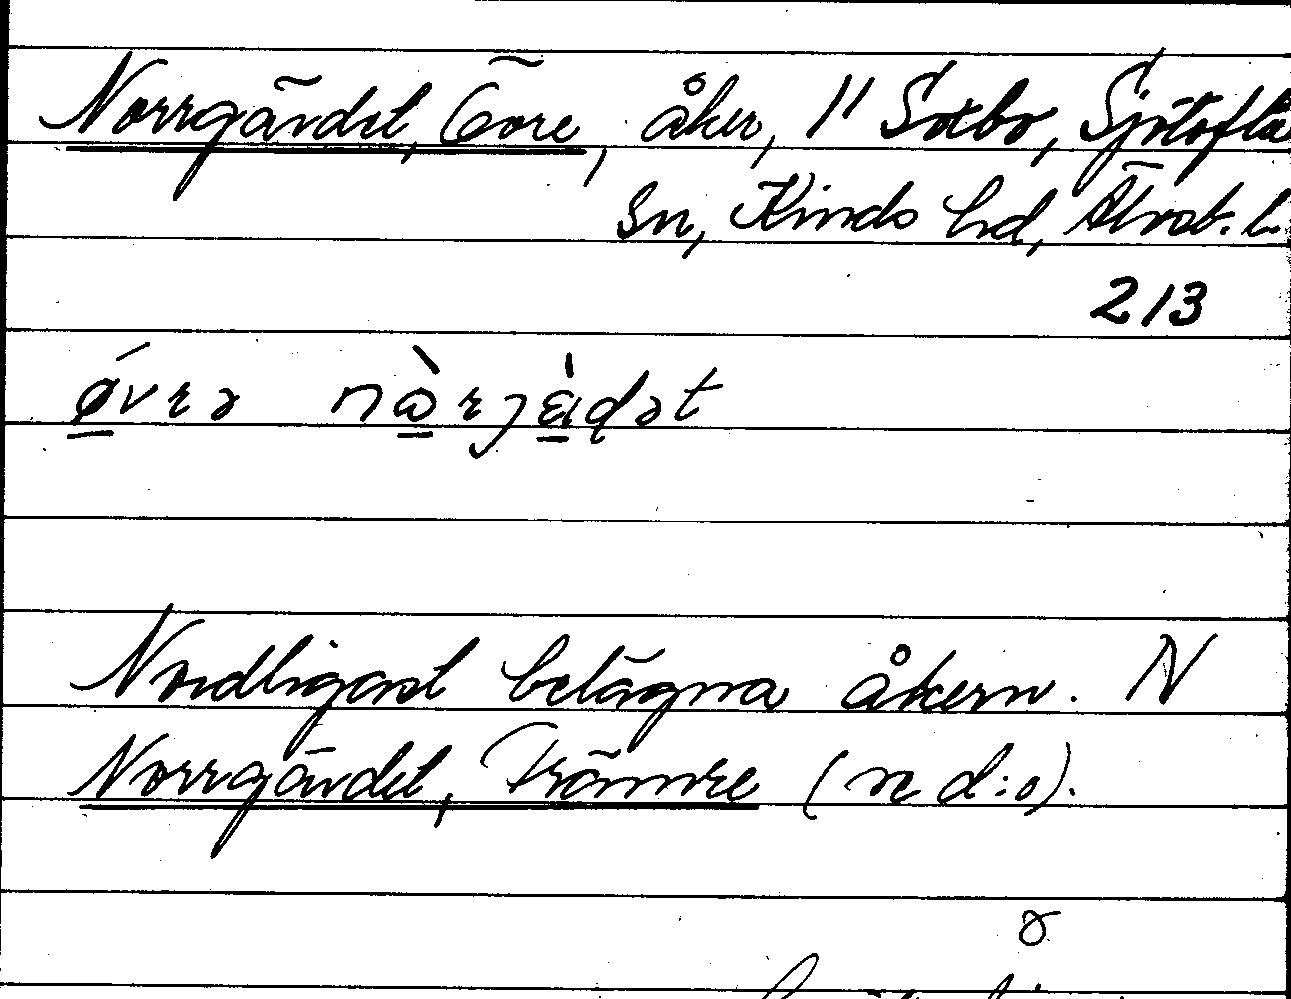 Norrgärdet, Övre, åker, 11 Sotbo, Sjötofta
Sn, Kinds hd, Älvsb. l.
213
øvrə nòrjædət
Nordligast belägna åkern. N
Norrgärdet, Främre (se d:o).